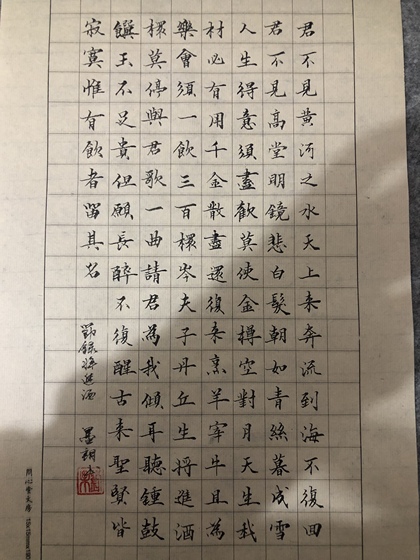 君不見黃河之水天上来奔流到海不復回
君不見高堂明鏡悲白髮朝如青絲暮成雪
人生得意須盡歡莫使金樽空對月天生我
材必有用千金散盡還復来烹羊宰牛且為
樂會須一飲三百桮岑夫子丹丘生將進酒
桮莫停與君歌一曲請君為我傾耳聽鍾鼓
饌玉不足貴但願長醉不復醒古来聖賢皆
寂寞惟有飲者留其名
節錄將進酒 墨